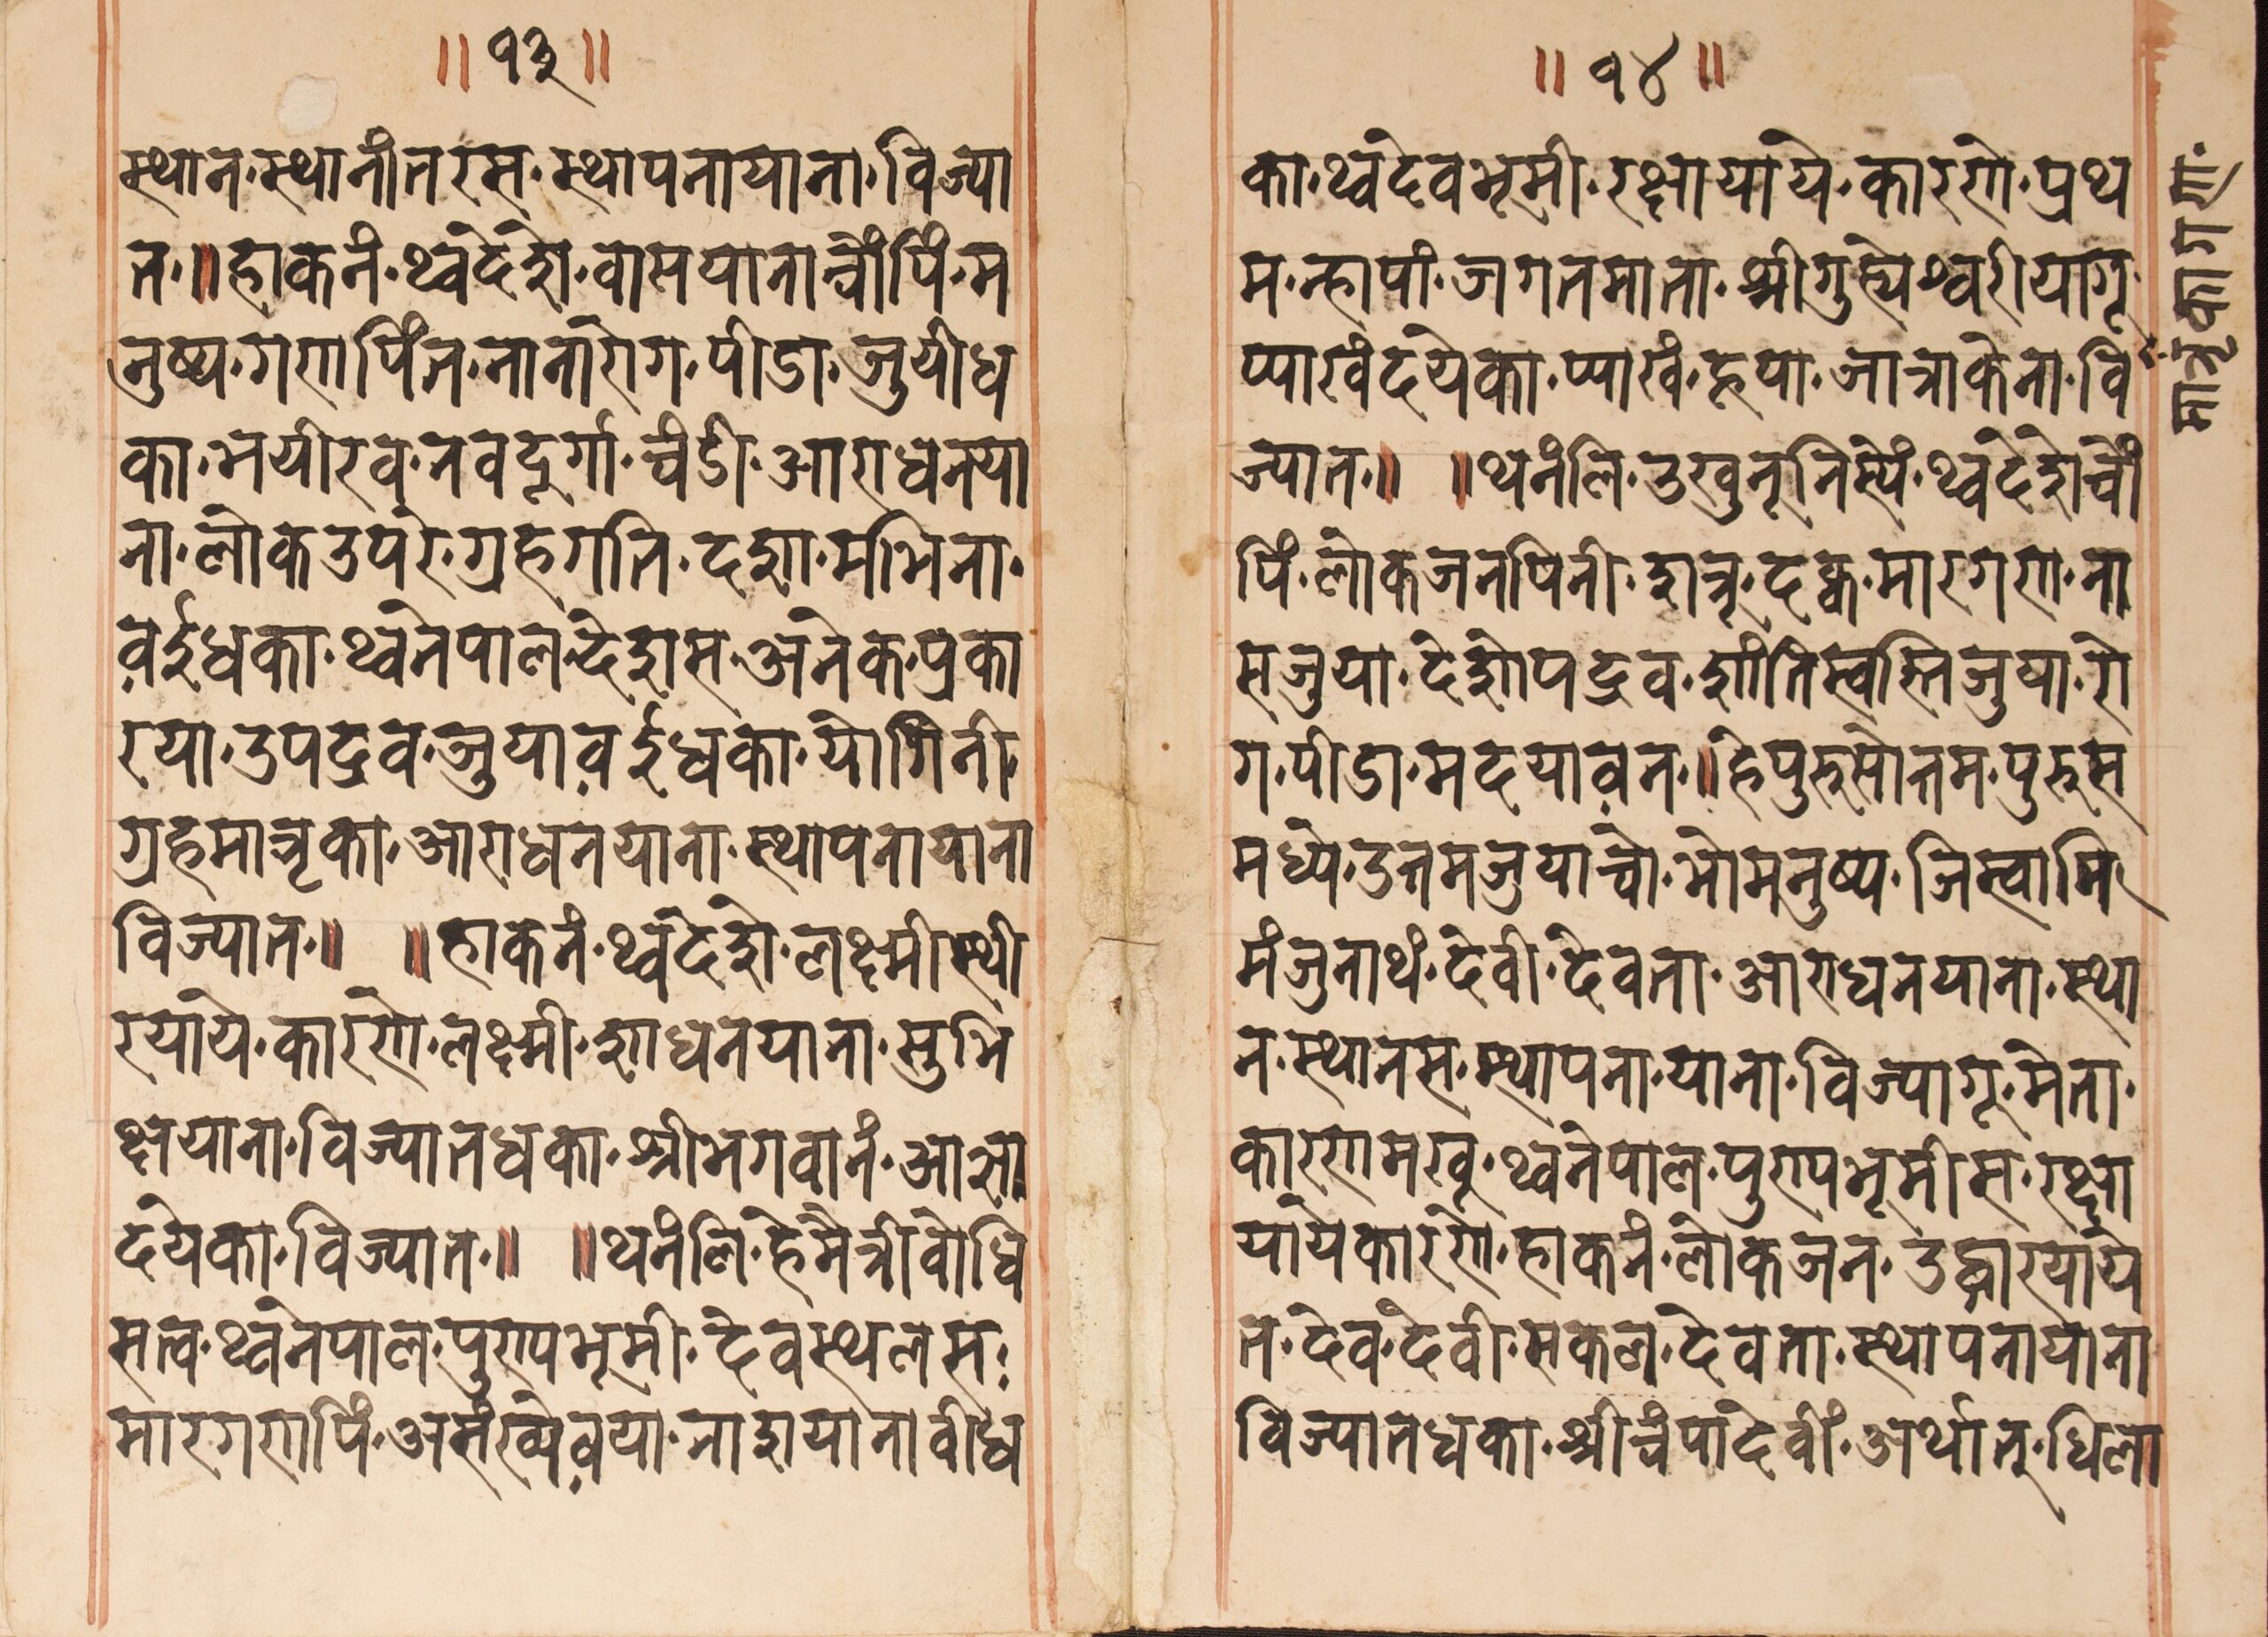 ॥ १३ ॥
स्थान·स्थानांतरस·स्थापनायाना·विज्या
त·॥हाकनं·थ्वदेशे·वासयानाच्वोंपिं·म
नुष्य·गणपिंत·नानारोग·पीडा·जुयीध
का·भयीरव·नवदूर्गा·चंडी·आराधनया
ना·लोकउपरे·ग्रहगति·दशा·मभिना·
व़ईधका·थ्वनेपालदेशस·अनेक·प्रका
रया·उपद्रव·जुयाव़ईधका·योगिनी·
ग्रहमातृका·आराधनयाना·स्थापनायाना
विज्यात·॥ ॥हाकनं·थ्वदेशे·लक्ष्मीस्थी
रयाये·कारणे·लक्ष्मी·शाधनयाना·सुभि
क्षयाना·विज्यातधका·श्रीभगवानं·आज्ञा
दयेका·विज्यात·॥ ॥थनंलि·हेमैत्रीबोधि
सत्व·थ्वनेपाल·पुण्यभूमी·देवस्थलस·
मारगणपिं·असंख्यव़या·नाशयानावीध
॥ १४ ॥
का·थ्वदेवभूमी·रक्षायाये·कारणे·प्रथ
म·न्हापां·जगतमाता·श्रीगुह्येश्वरीयागू·
प्याखंदयेका·प्याखं·हूया·जात्राकेना·वि
ज्यात·॥ ॥थनंलि·उखुनूनिस्यें·थ्वदेशेच्वों
पिं·लोकजनपिनी·शत्रू·दक्व·मारगण·ना
सजुया·देशोपद्रव·शांतिस्वस्तिजुया·रो
ग·पीडा·मदयाव़न·॥हेपुरुसोत्तम·पुरुस
मध्ये·उत्तमजुयाच्वो·भोमनुष्य·जिस्वामि
मंजुनाथं·देवी·देवता·आराधनयाना·स्था
न·स्थानस·स्थापना·याना·विज्यागू·मेता·
कारणमखू·थ्वनेपाल·पुण्यभूमीस·रक्षा
यायेकारणे·हाकनं·लोकजन·उद्धारयाये
त·देव·देवी·सकल·देवता·स्थापनायाना
विज्यातधका·श्रीचंपादेवीं·अर्थात्·धिला
मातृकागण·